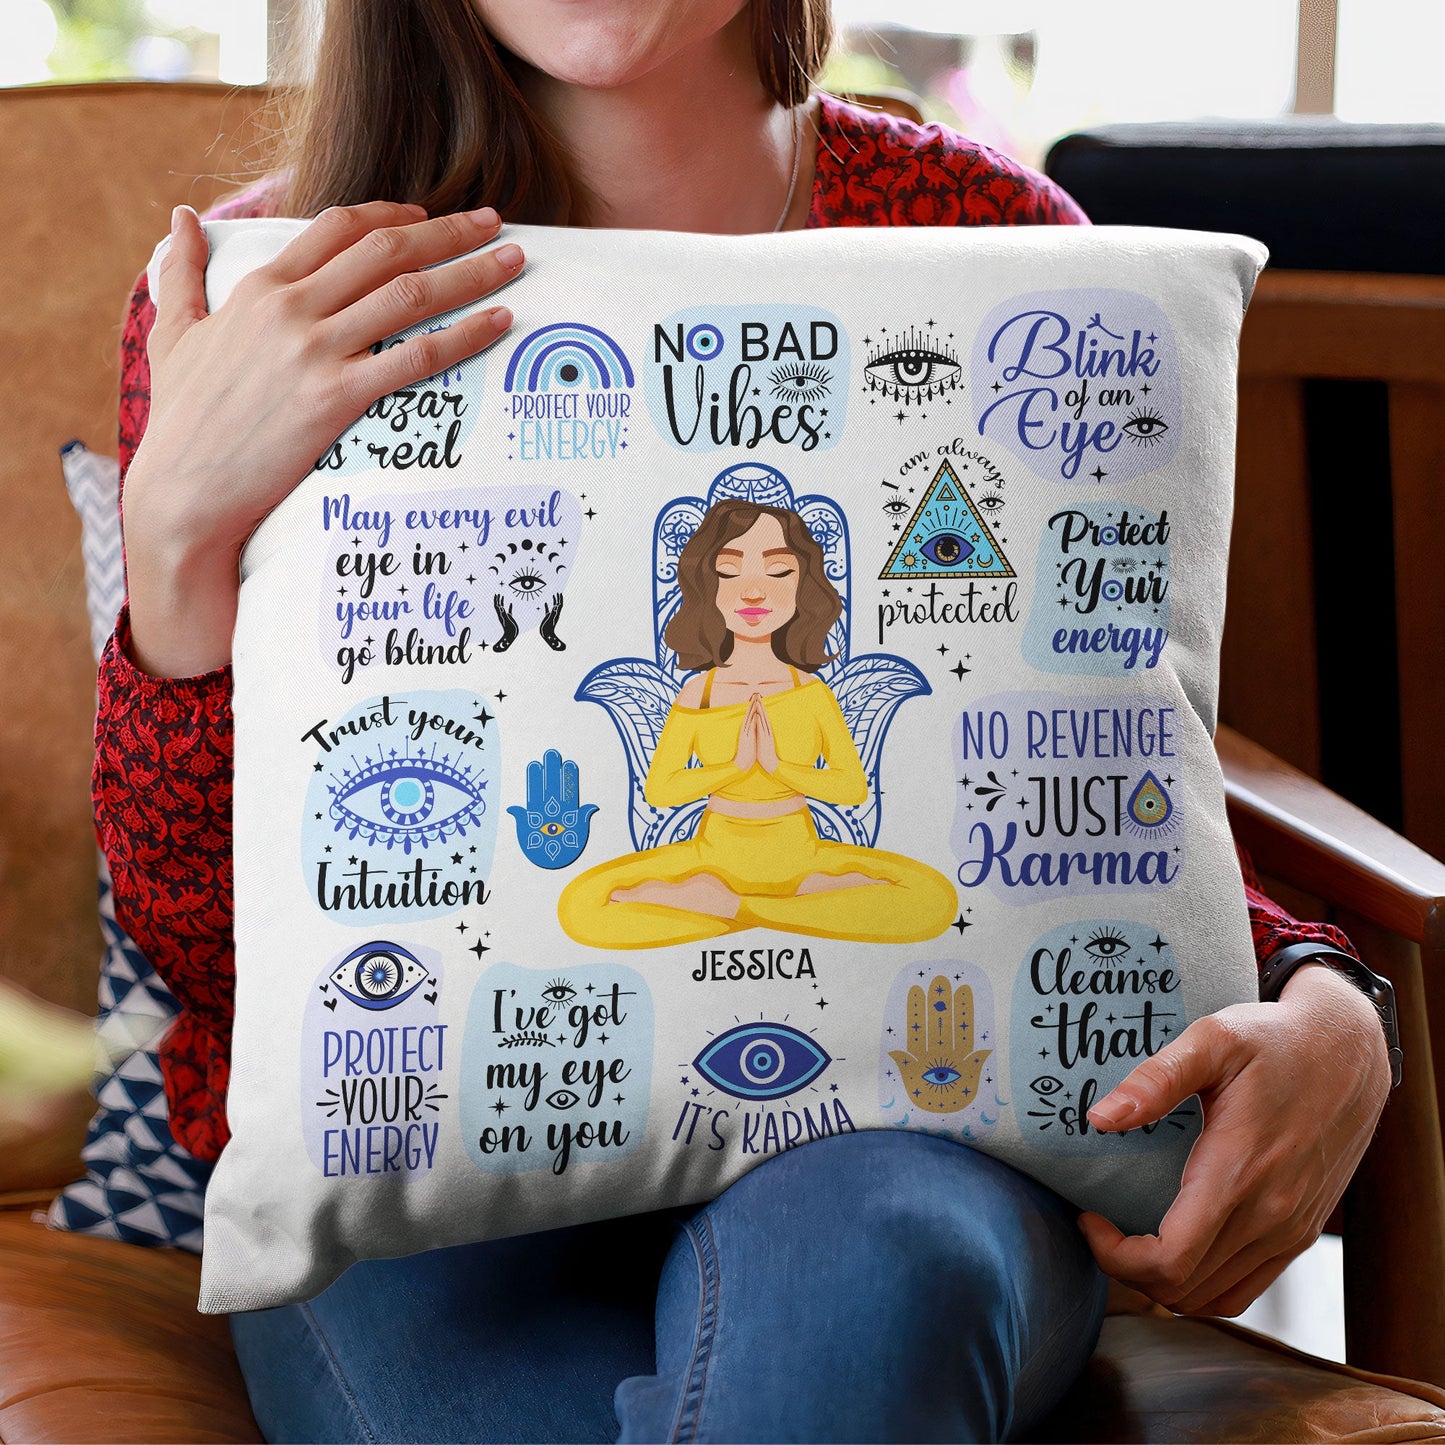 is real
PROTECT YOUR
ENERGY
NO BAD
Vibes
Blink
of an
Eye
May every evil
eye in
your life
go blind
I am always
protected
Protect
Your
energy
Trust your
Intuition
NO REVENGE
JUST
Karma
JESSICA
PROTECT
YOUR
ENERGY
I've got
my eye
on you
IT'S KARMA
Cleanse
that